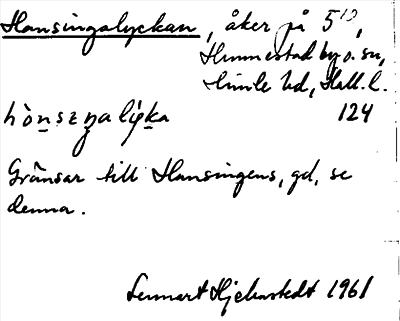 Hansingalyckan, åker på 5¹⁰,
Himmestad by o. sn,
Himle hd, Hall. l.
hònseŋalýka 124
Gränsar till Hansingens, gd, se
denna.
Lennart Hjelmstedt 1961